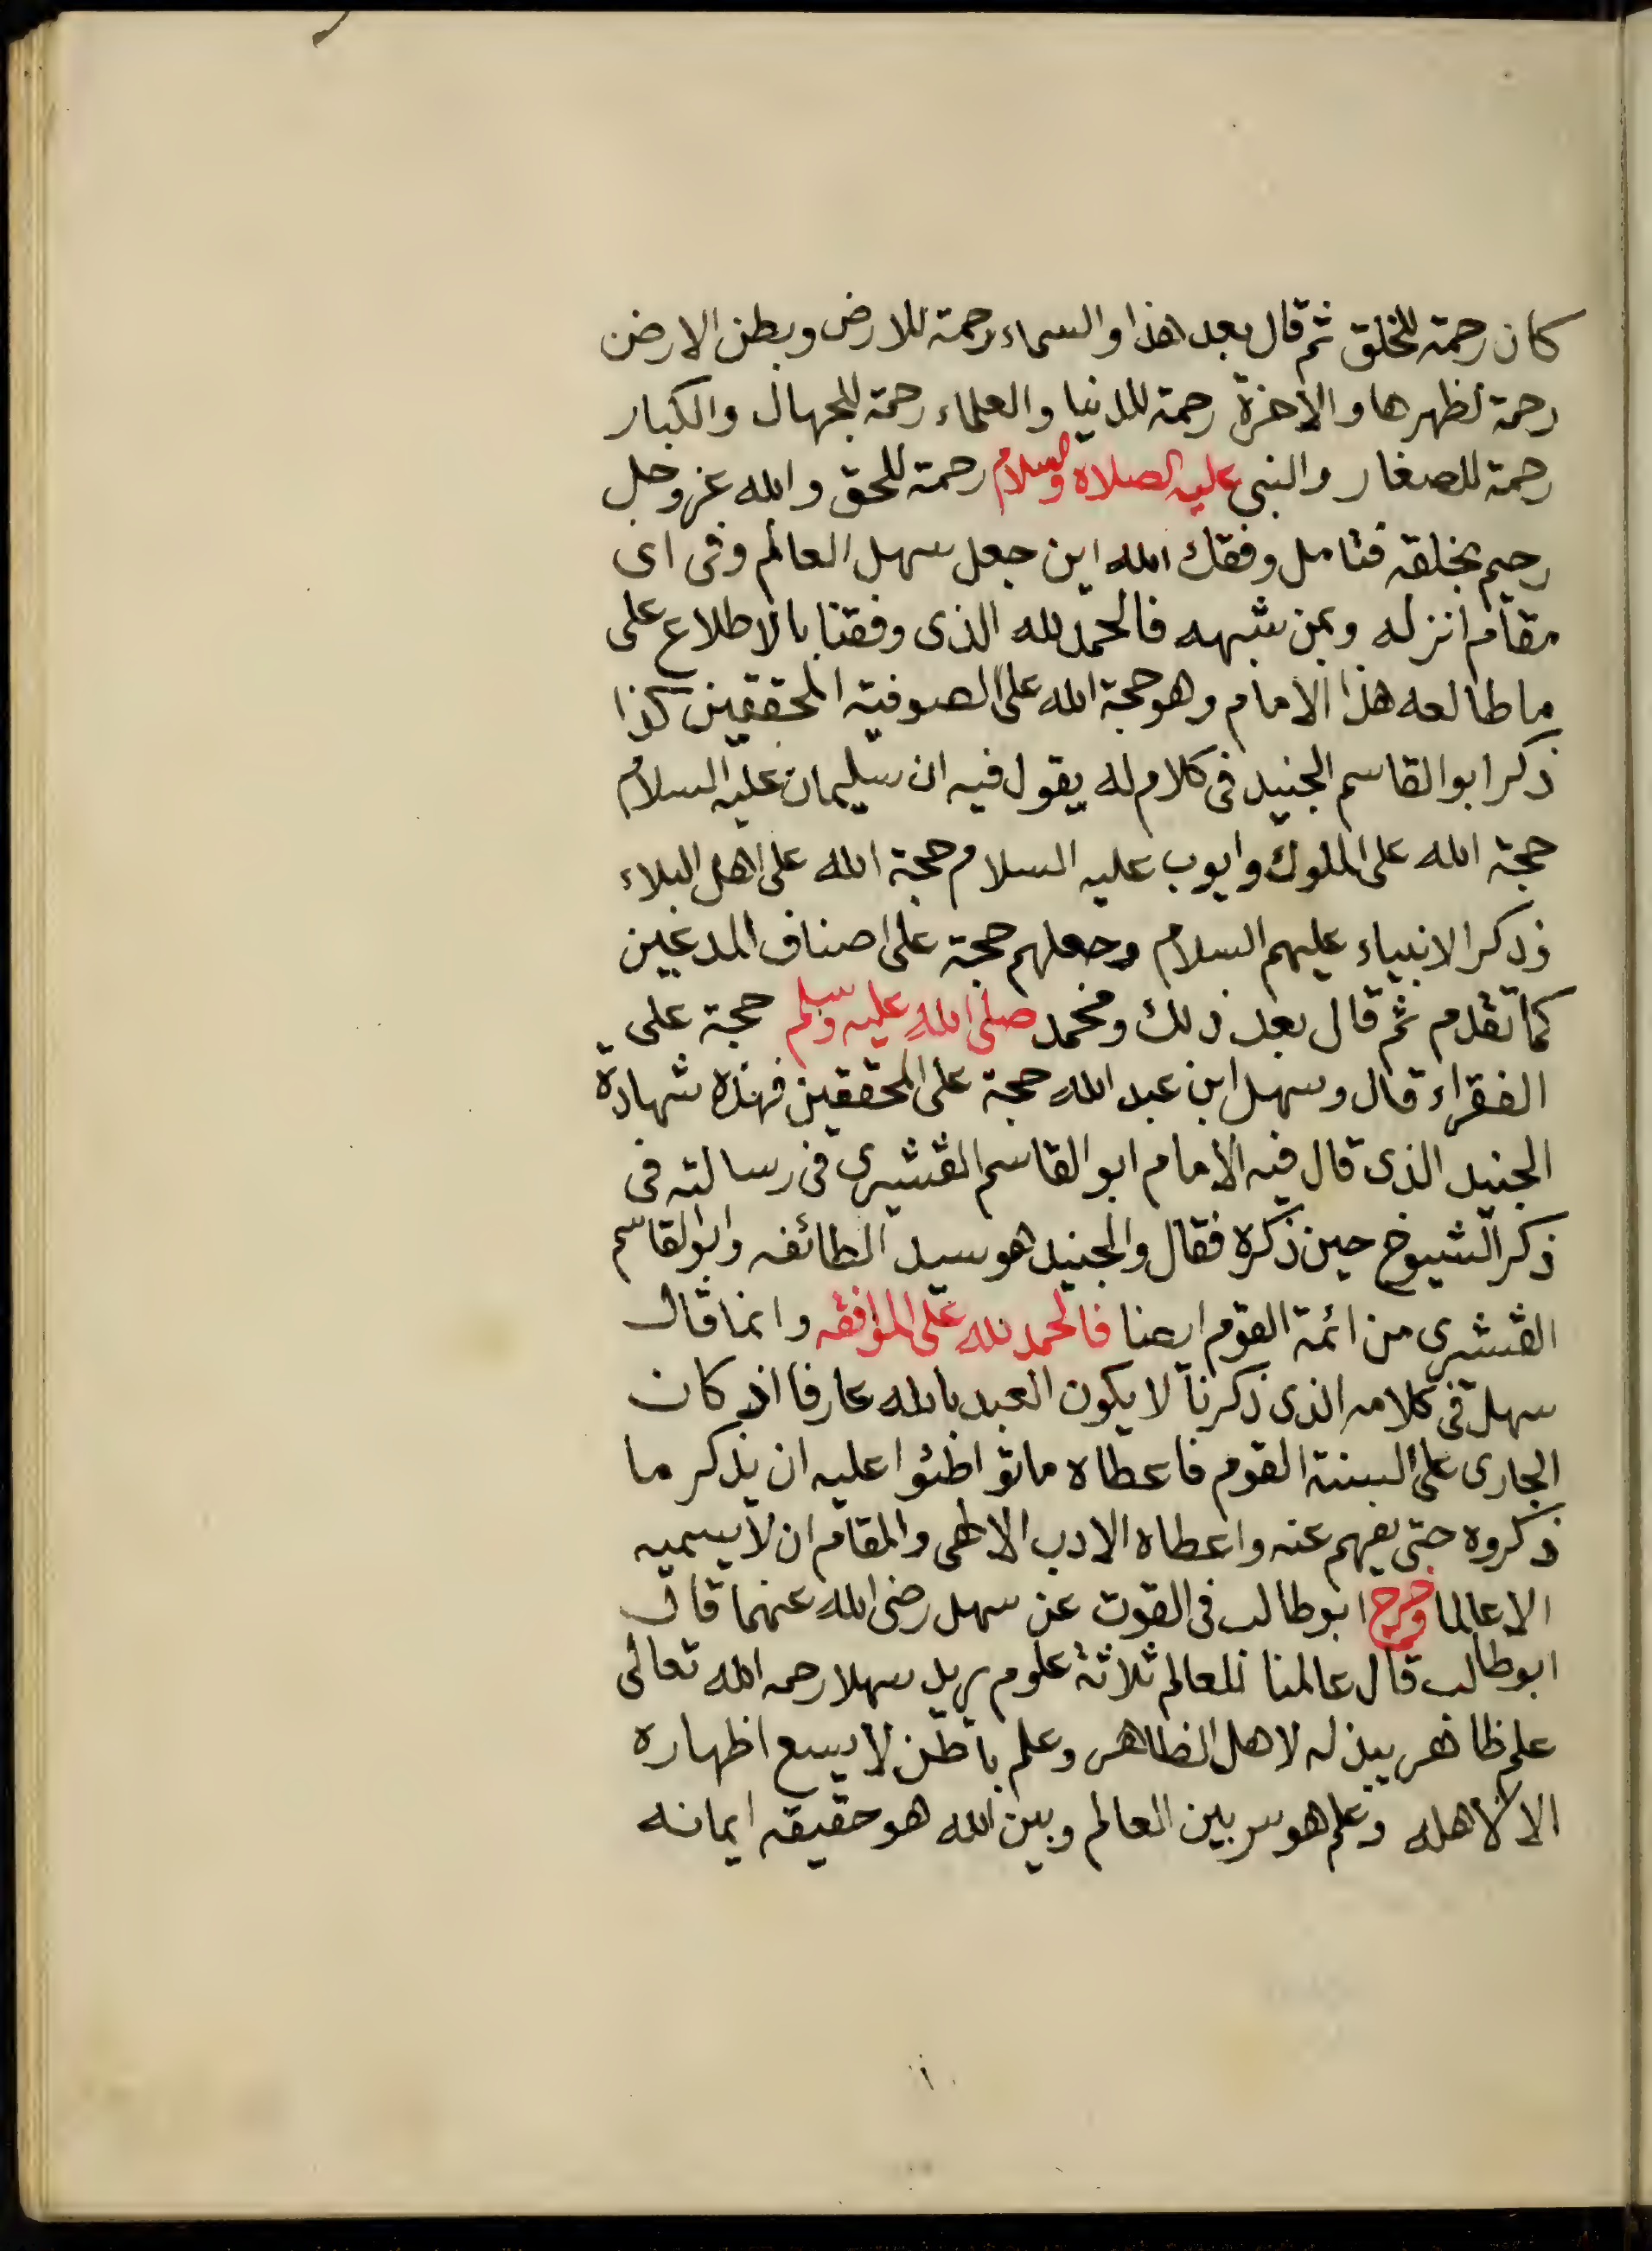 كان رحمة للخلق ثم قال بعد هذا والسماء رحمة للارض وبطن الارض
رحمة لظهرها والاخرة رحمة للدنيا والعلماء رحمة للجهال والكبار
رحمة للصغار والنبى عليه الصلاة والسلام رحمة للحق والله عز وجل
رحيم بخلقه فتامل وفقك الله اين جعل سهل العالم وفى اى
مقام انزله وبمن شبهه فالحمد لله الذى وفقنا بالاطلاع على
ما طالعه هذا الامام وهو حجة الله على الصوفية المحققين كذا
ذكر ابو القاسم الجنيد فى كلام له يقول فيه ان سليمان عليه السلام
حجة الله على الملوك وايوب عليه السلام حجة الله على اهل البلاء
وذكر الانبياء عليهم السلام وجعلهم حجة على اصناف المدعين
كما تقدم ثم قال بعد ذلك ومحمد صلى الله عليه وسلم حجة على
الفقراء قال وسهل ابن عبد الله حجة على المحققين فهذه شهادة
الجنيد الذى قال فيه الامام ابو القاسم القشيرى فى رسالته فى
ذكر الشيوخ حين ذكره فقال والجنيد هو سيد الطائفه وابو القاسم
القشيرى من ائمة القوم ايضا فالحمد لله على الموافقه وانما قال
سهل فى كلامه الذى ذكرنا لا يكون العبد بالله عارفا اذ كان
الجارى على السنة القوم فاعطاه ما تواطئوا عليه ان يذكر ما
ذكروه حتى يفهم عنه واعطاه الادب الالهى والمقام ان لا يسميه
الا عالما وخرج ابو طالب فى القوت عن سهل رضى الله عنهما قال
ابو طالب قال عالمنا للعالم ثلاثة علوم يريد سهلا رحمه الله تعالى
علم ظاهر يبذله لاهل الظاهر وعلم باطن لا يسع اظهاره
الا لاهله وعلم هو سر بين العالم وبين الله هو حقيقه ايمانه